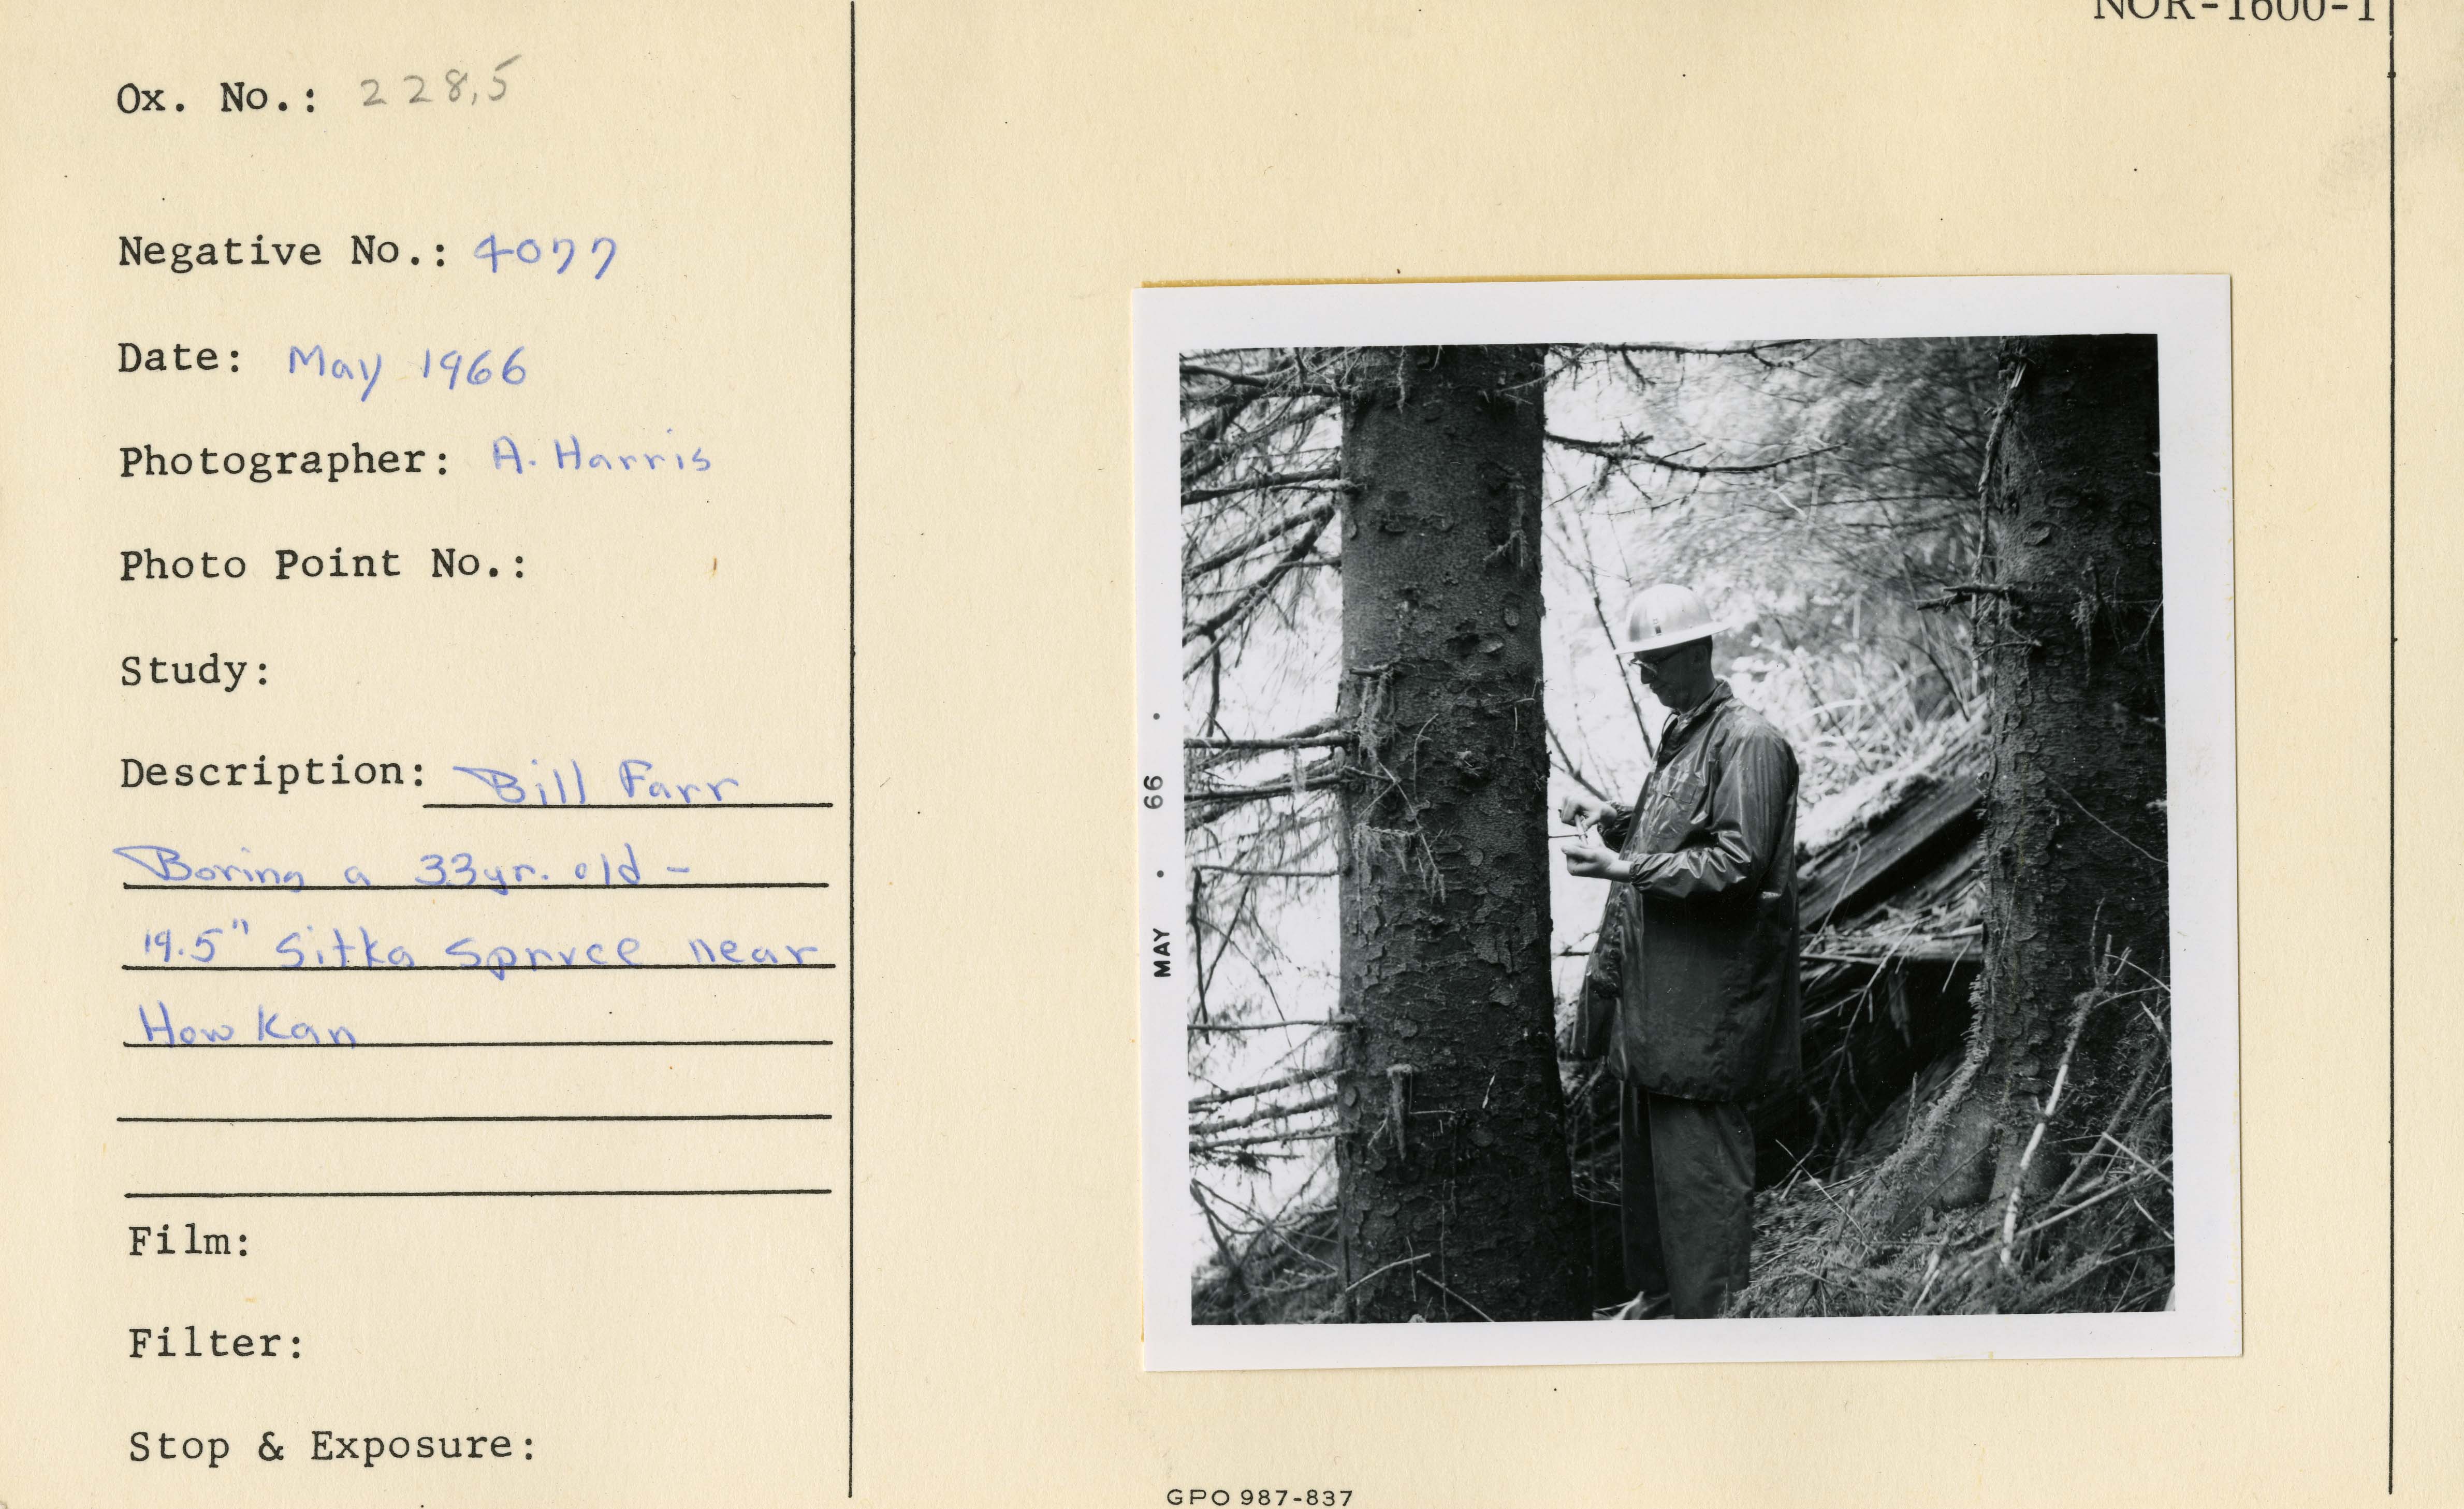 NOR-1600-1
Ox. No.: 228.5
Negative No.: 4077
Date: May 1966
Photographer: A. Harris
Photo Point No.:
Study:
Description: Bill Farr
Boring a 33yr. old -
19.5" Sitka Spruce near
How Kan
Film:
Filter:
Stop & Exposure:
MAY • 66 •
GPO 987-837